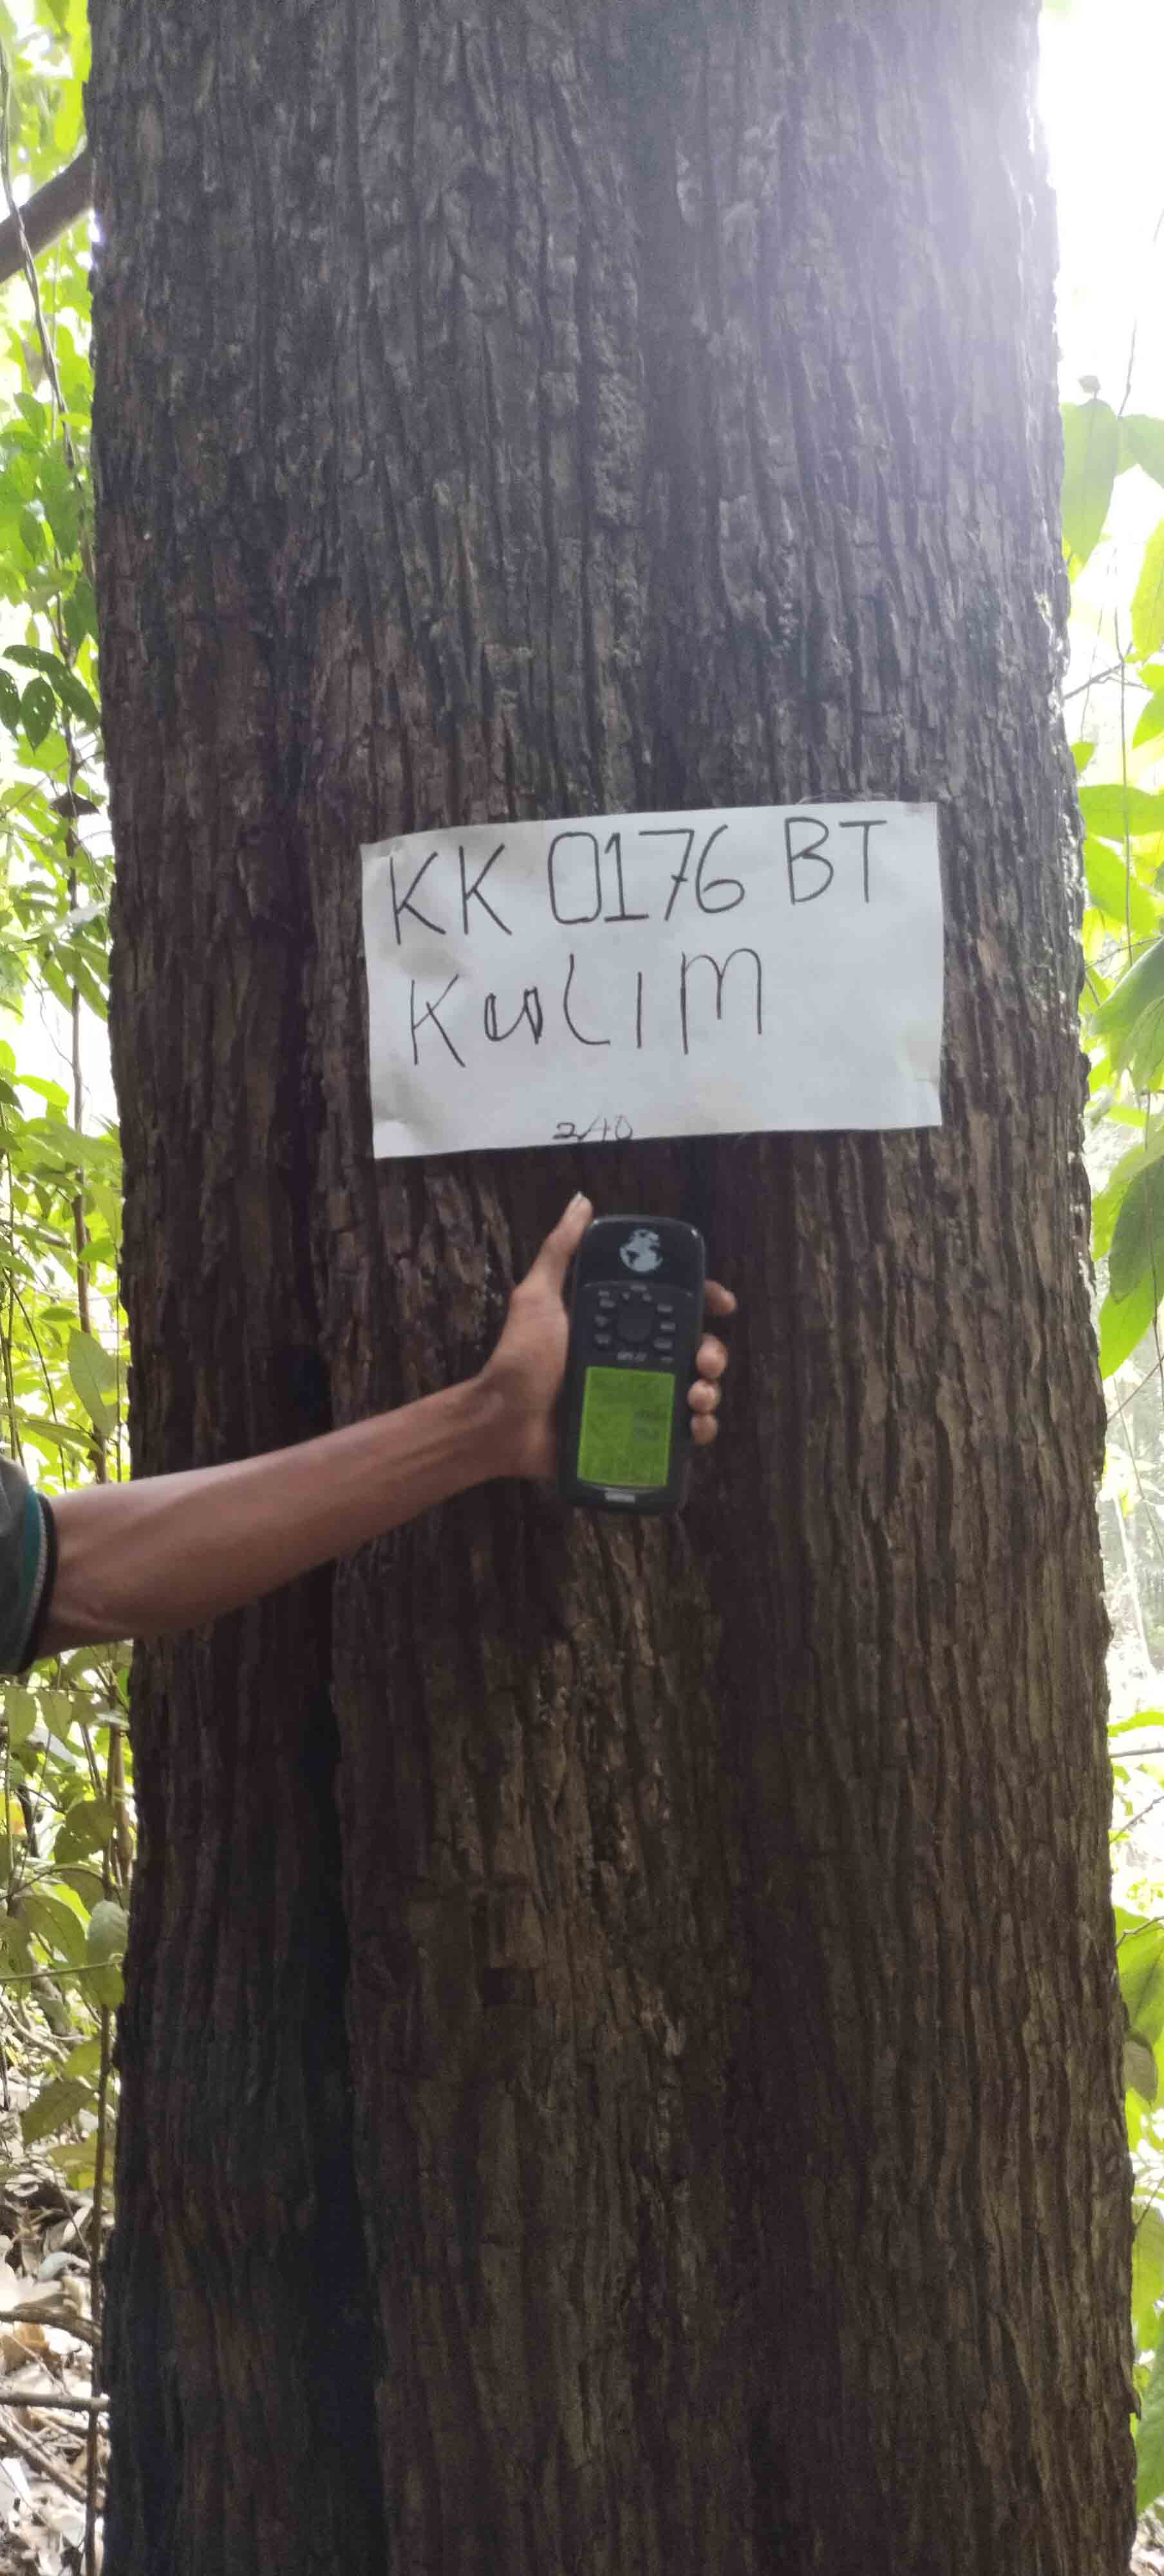 KK 0176 BT
KULIM
240